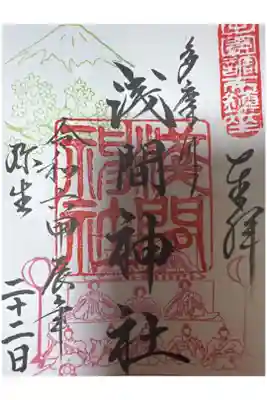 奉拝
多摩川
浅間神社
令和六甲辰年
弥生
二十二日
淺間
神社